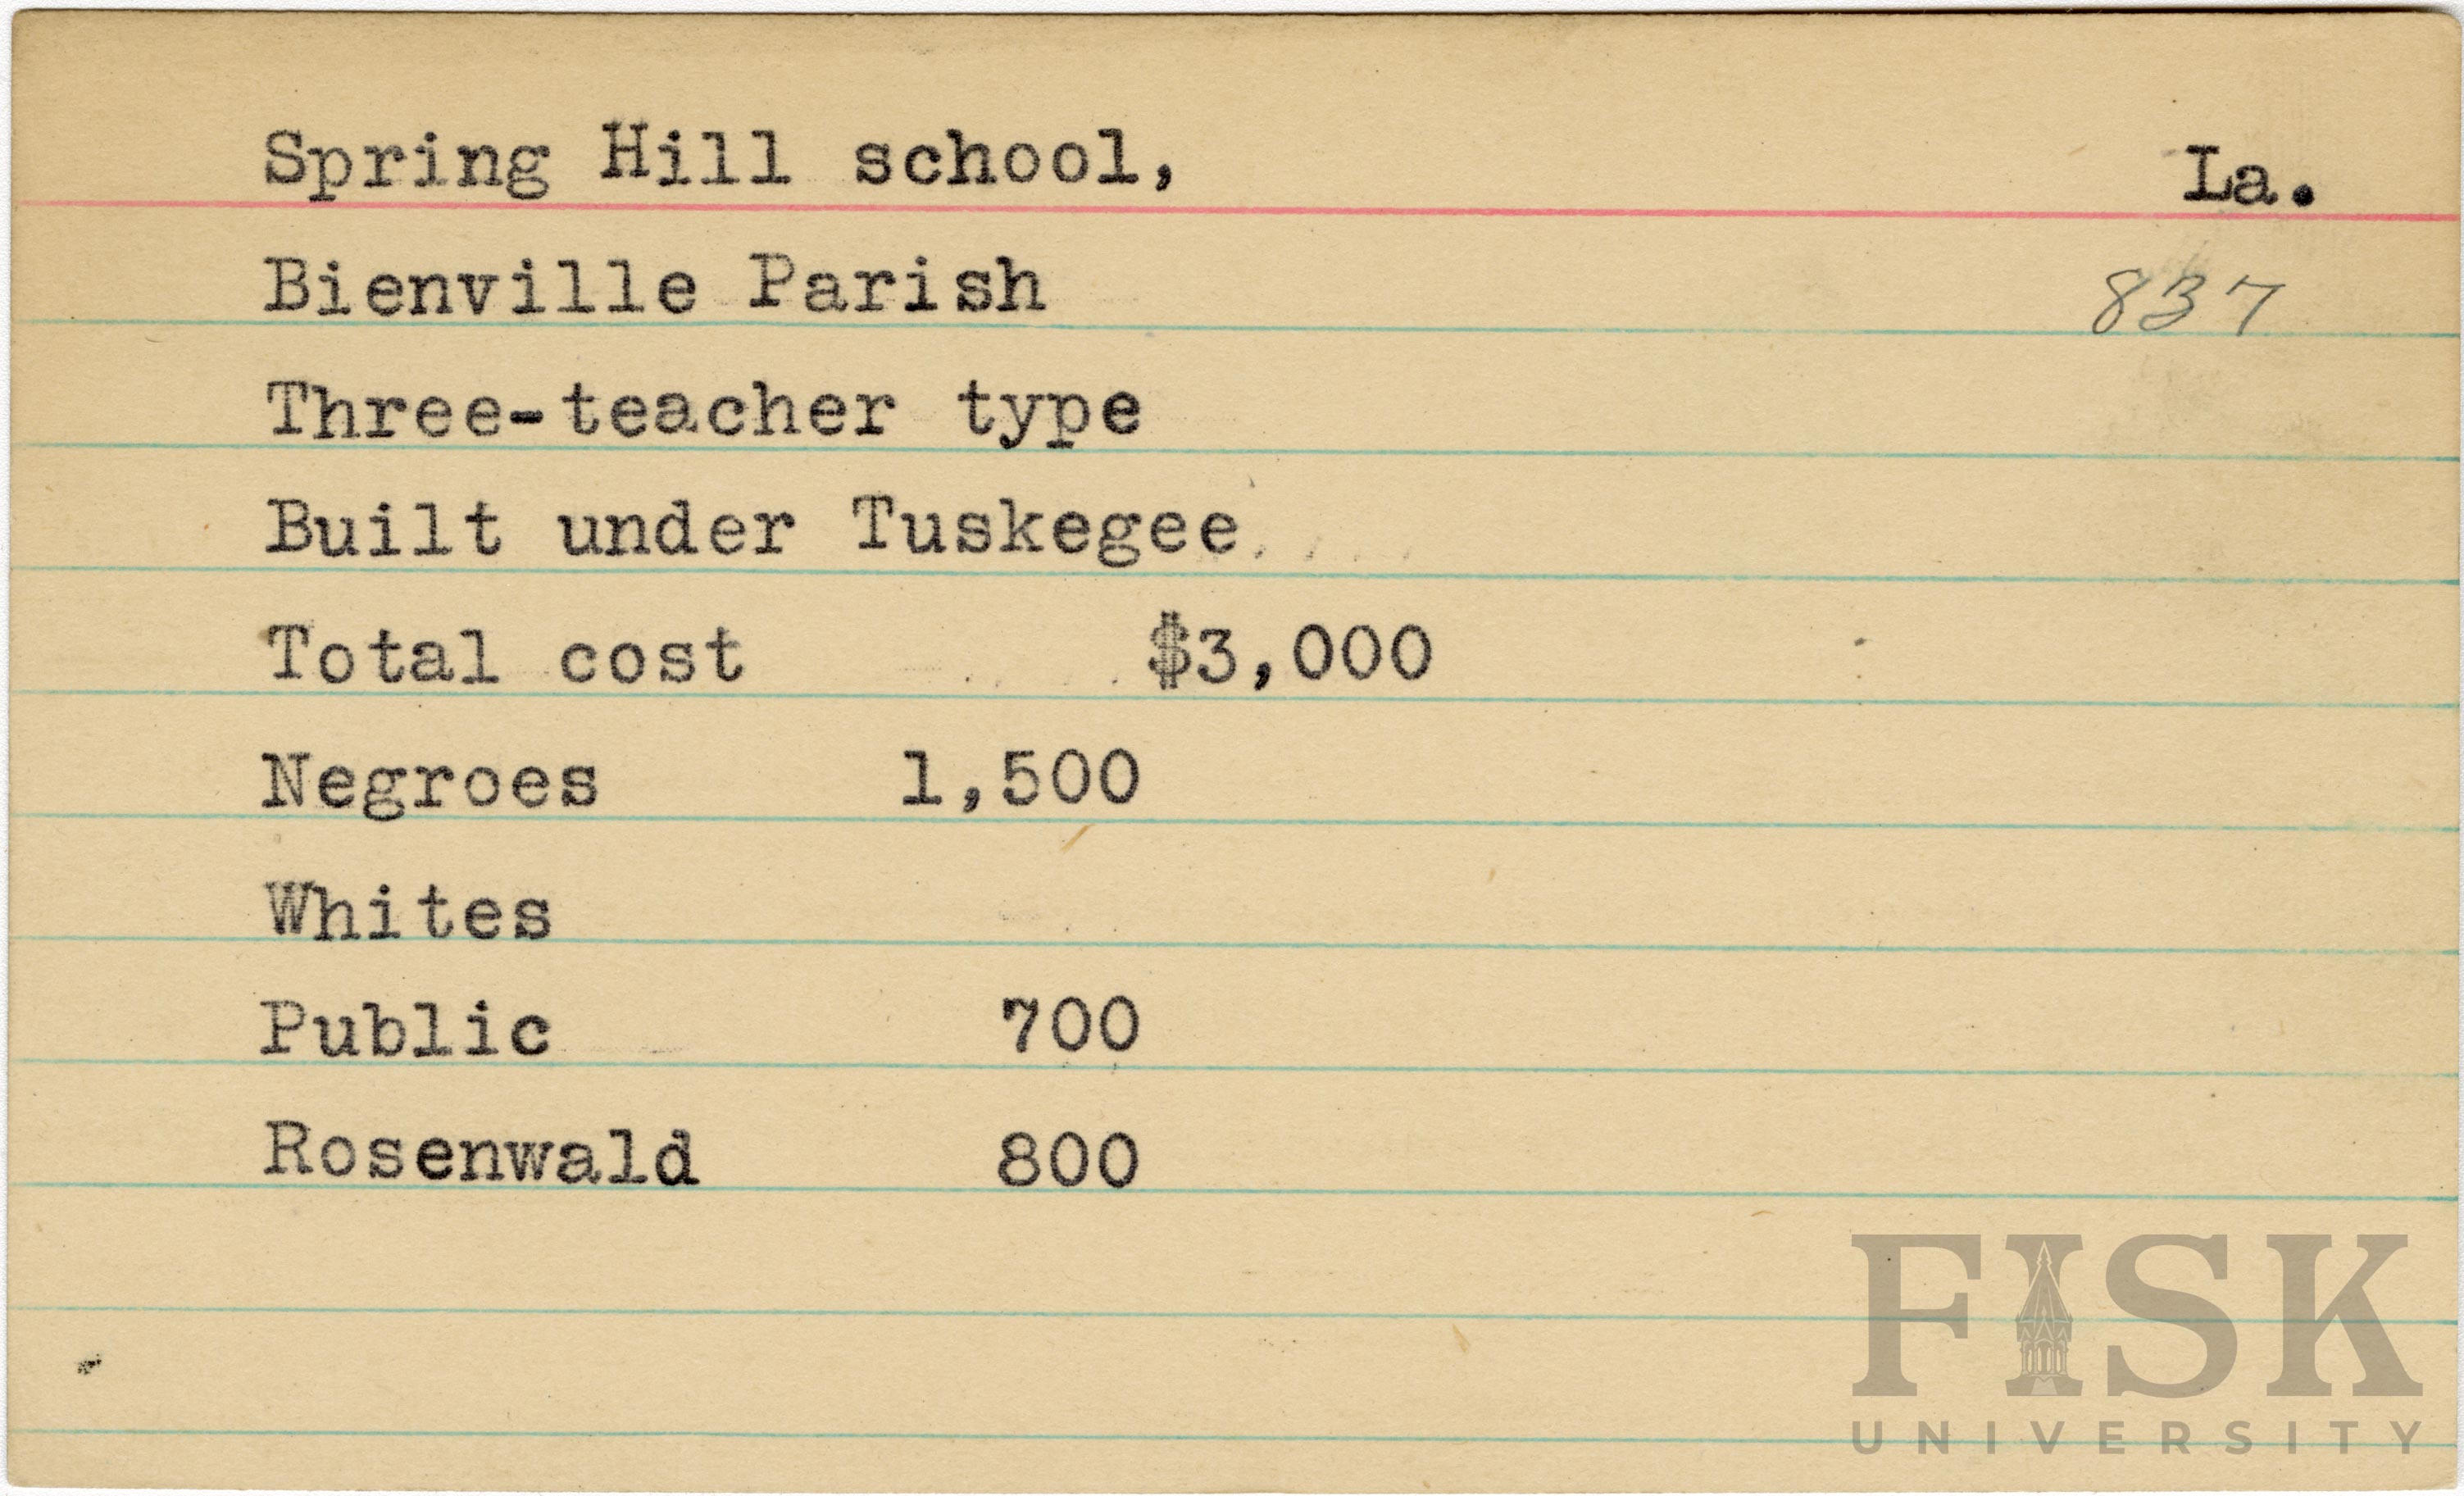 Spring Hill school, La.
Bienville Parish 837
Three-teacher type
Built under Tuskegee
Total cost $3,000
Negroes 1,500
Whites
Public 700
Rosenwald 800
FISK
UNIVERSITY